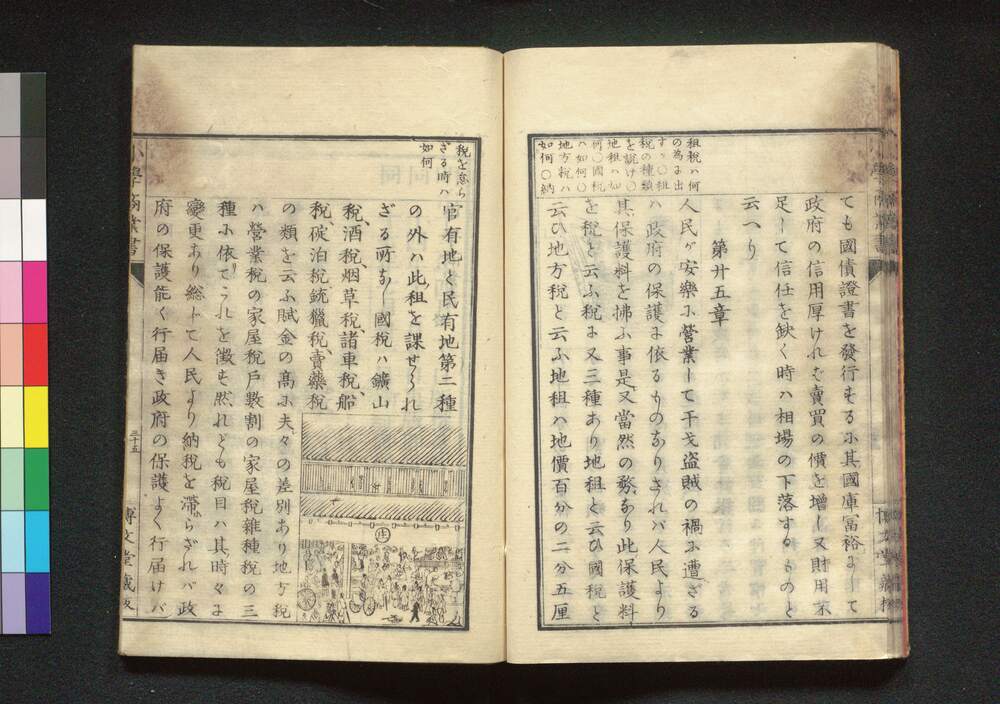 租税ハ何
の為に出
すヤ〇租
税の種類
を説け〇
地租ハ如
何〇國税
ハ如何〇
地方税ハ
如何〇納
ても國債證書を發行もる小其國庫冨裕よして
政府の信用厚けれバ賣買の價を増し又財用不
足して信任を缺く時ハ相場の下落するものと
云へり
第廿五章
人民ゲ安樂小營業して干戈盗賊の禍小遭ざる
ハ政府の保護よ依るものなりされバ人民より
其保護料を拂ふ事是又當然の務なり此保護料
を税と云ふ税よ又三種あり地租と云ひ國税と
云ひ地方税と云ふ地租ハ地價百分の二分五厘
税を怠ら
ざる時ハ
如何
官有地と民有地第二種
の外ハ此租を課せられ
ざる所なし國税ハ鑛山
税、酒税、烟草税、諸車税、船
税、碇泊税、銃獵税、賣藥税
の類を云ふ賦金の髙小夫々の差別あり地方税
ハ營業税の家屋税戸數割の家屋税雜種税の三
種小依てこれを徴も然れども税目ハ其時々よ
變更あり総して人民より納税を滯らざれバ政
府の保護能く行届き政府の保護よく行届けバ
三十五
博文堂蔵版